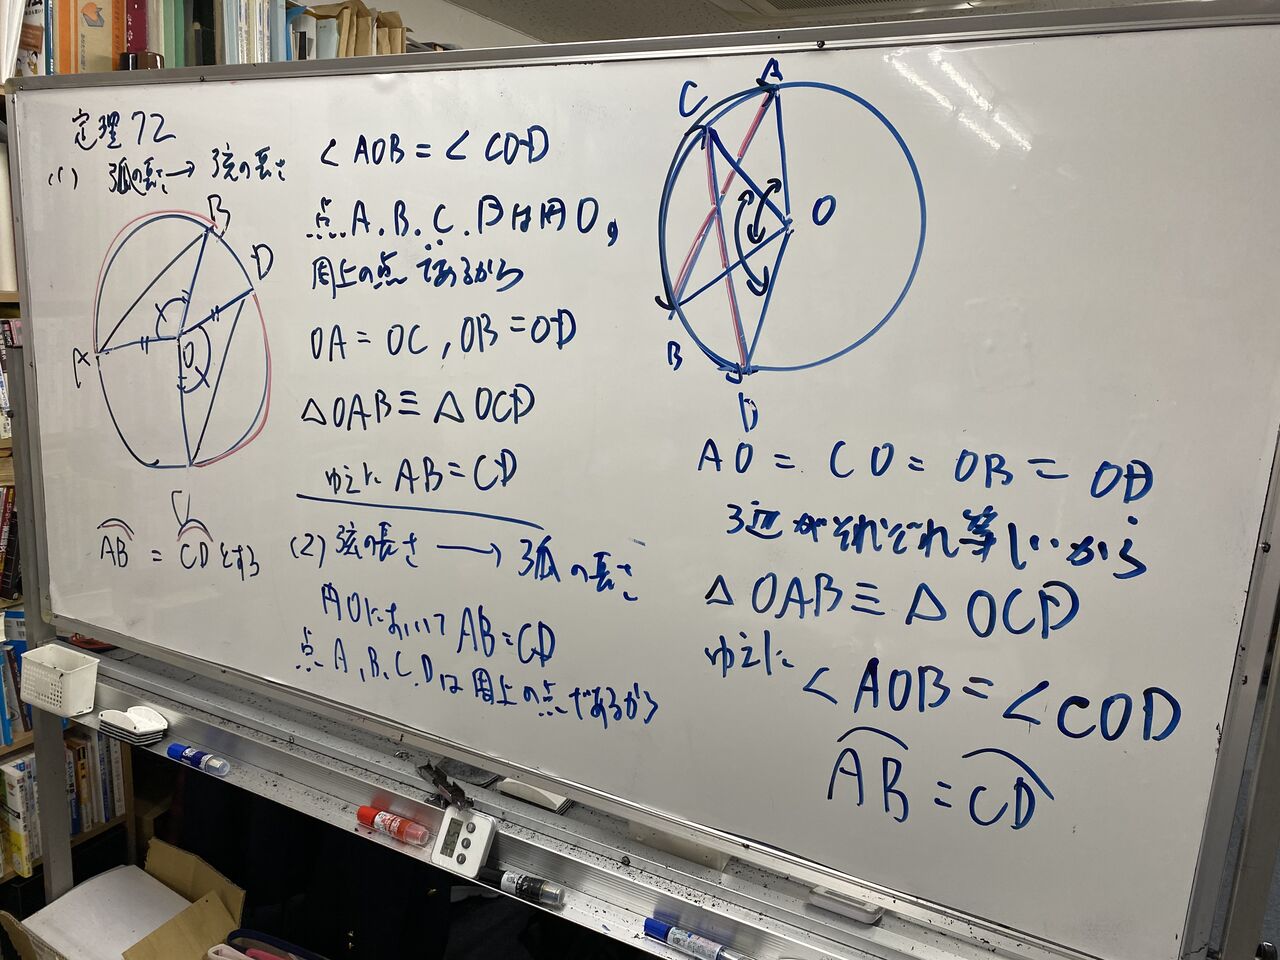 定理72
(1) 弧の長さ→弦の長さ
B
D
A
O
C
AB = CDとする
∠AOB = ∠COD
点A.B.C.Dは円O,
周上の点であるから
OA = OC, OB = OD
△OAB ≡ △OCD
ゆえに AB = CD
(2) 弦の長さ → 弧の長さ
円Oにおいて AB = CD
点A.B.C.Dは周上の点であるから
A
C
O
B
D
AO = CO = OB = OD
3辺がそれぞれ等しいから
△OAB ≡ △OCD
ゆえに
∠AOB = ∠COD
AB = CD